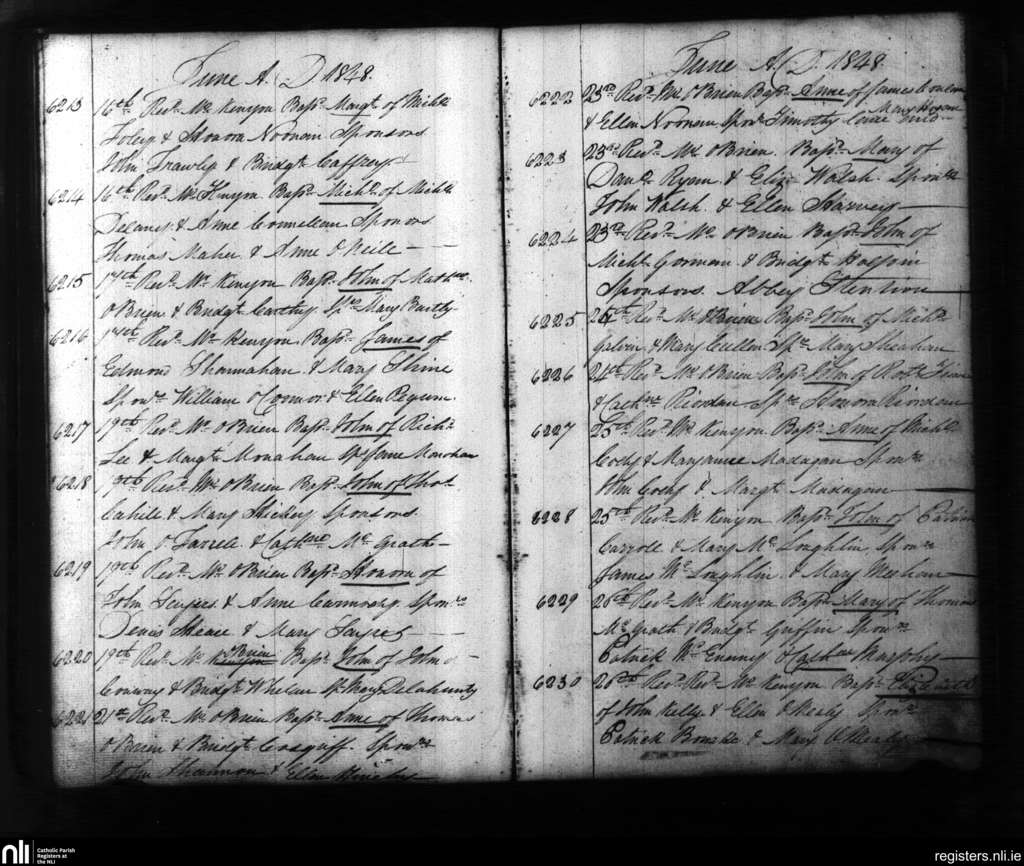 June A. D 1848.
6213 16th Revd. Mr. Kenyon Bapd. Margt. of Michl.
Foley & Honora Noonan Sponsors
John Frawley & Bridgt. Caffrey
6214 16th Revd. Mr. Kenyon Bapd. Michl. of Michl.
Delaney & Anne Sponsors
Thomas Maher & Anne O Neile
6215 17th Revd. Mr. Kenyon Bapd. John of Matthw.
O'Brien & Bridgt. Carthy Sprs. Mary Bartly
6216 17th Revd. Mr. Kenyon. Bapd. James of
Edmond Shannahan & Mary
Sponrs. William O Connor & Ellen
6217 19th Revd. Mr. O'Brien Bapd. John of Richd.
Lee & Margt. Monahan Sp. Jane Monohan
6218 19th Revd. Mr. O'Brien Bapd. John of Thos.
Cahill & Mary Hickey Sponsors.
John O Farrell & Cathne. Mc. Grath
6219 19th Revd. Mr. O'Brien Bapd. Honora of
John & Anne Sponrs.
Denis & Mary
6220 19th Revd. Mr. Kenyon O'Brien Bapd. John of John
Conway & Bridgt. Whelan Sp. Mary Delahunty
6221 21st Revd. Mr. O'Brien Bapd. Anne of Thomas
O'Brien & Bridgt. Sponrs.
John Shannon & Ellen
June A. D. 1848
6222 23rd Revd. Mr. O'Brien Bapd. Anne of James
& Ellen Noonan Sponr. Timothy Mary Hogan
6223 23rd Revd. Mr. O'Brien. Bapd. Mary of
Danl. Ryan & Eliza Walsh. Sponrs.
John Walsh & Ellen
6224 23rd Revd. Mr. O'Brien Bapd. John of
Michl. Gorman & Bridgt.
Sponsors. Abbey
6225 24th Revd. Mr. O'Brien Bapd. John of Michl.
Galvin & Mary Cullen Spr. Mary Sheahan
6226 24th Revd. Mr. O'Brien Bapd. John of
& Cathne. Riordan Spr. Honora Riordan
6227 25th Revd. Mr. Kenyon. Bapd. Anne of Michl.
& Maryanne Madagan Sponrs.
John & Margt. Madagan
6228 25th Revd. Mr. Kenyon Bapd. John of
Carroll & Mary Mc. Loughlin Sponrs.
James Mc. Loughlin & Mary Meehan
6229 26th Revd. Mr. Kenyon Bapd. Mary of Thomas
Mc. Grath & Bridgt. Griffin Sponrs.
Patrick Mc. Enerny & Cathne. Murphy
6230 26th Revd. Revd. Mr. Kenyon Bapd. Elizabeth
of John Kelly & Ellen O Mealy Sponrs.
Patrick Bourke & Mary O Mealy
nli Catholic Parish
Registers at
the NLI
registers.nli.ie